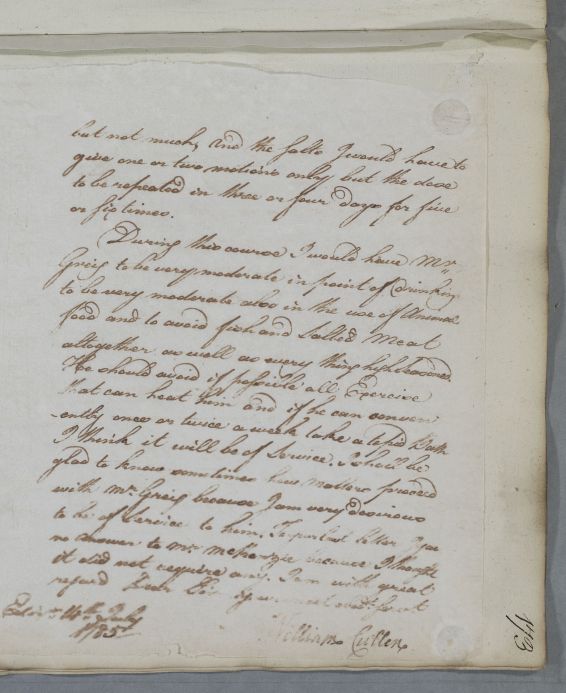 but not much, and the salts I would have to
give one or two motions only but the dose
to be repeated in three or four days for five
or six times.
During this course I would have Mr.
Greig to be very moderate in point of drinking
to be very moderate also in the use of Animal
food and to avoid fish and Salted Meat
altogether as well as every thing high seasoned.
He should avoid if possible all Exercise
that can heat him and if he can conveni
-ently once or twice a week take a tepid Bath
I think it will be of Service. I shall be
glad to know sometimes how matters proceed
with Mr. Greig because I am very desirous
to be of Service to him. To letter I gave
no answer to Mr. McKenzie because I thought
it did not require any. I am with great
regard Dear Sir your most obedt. servt
William Cullen
Edinr. 14th July
1785
443